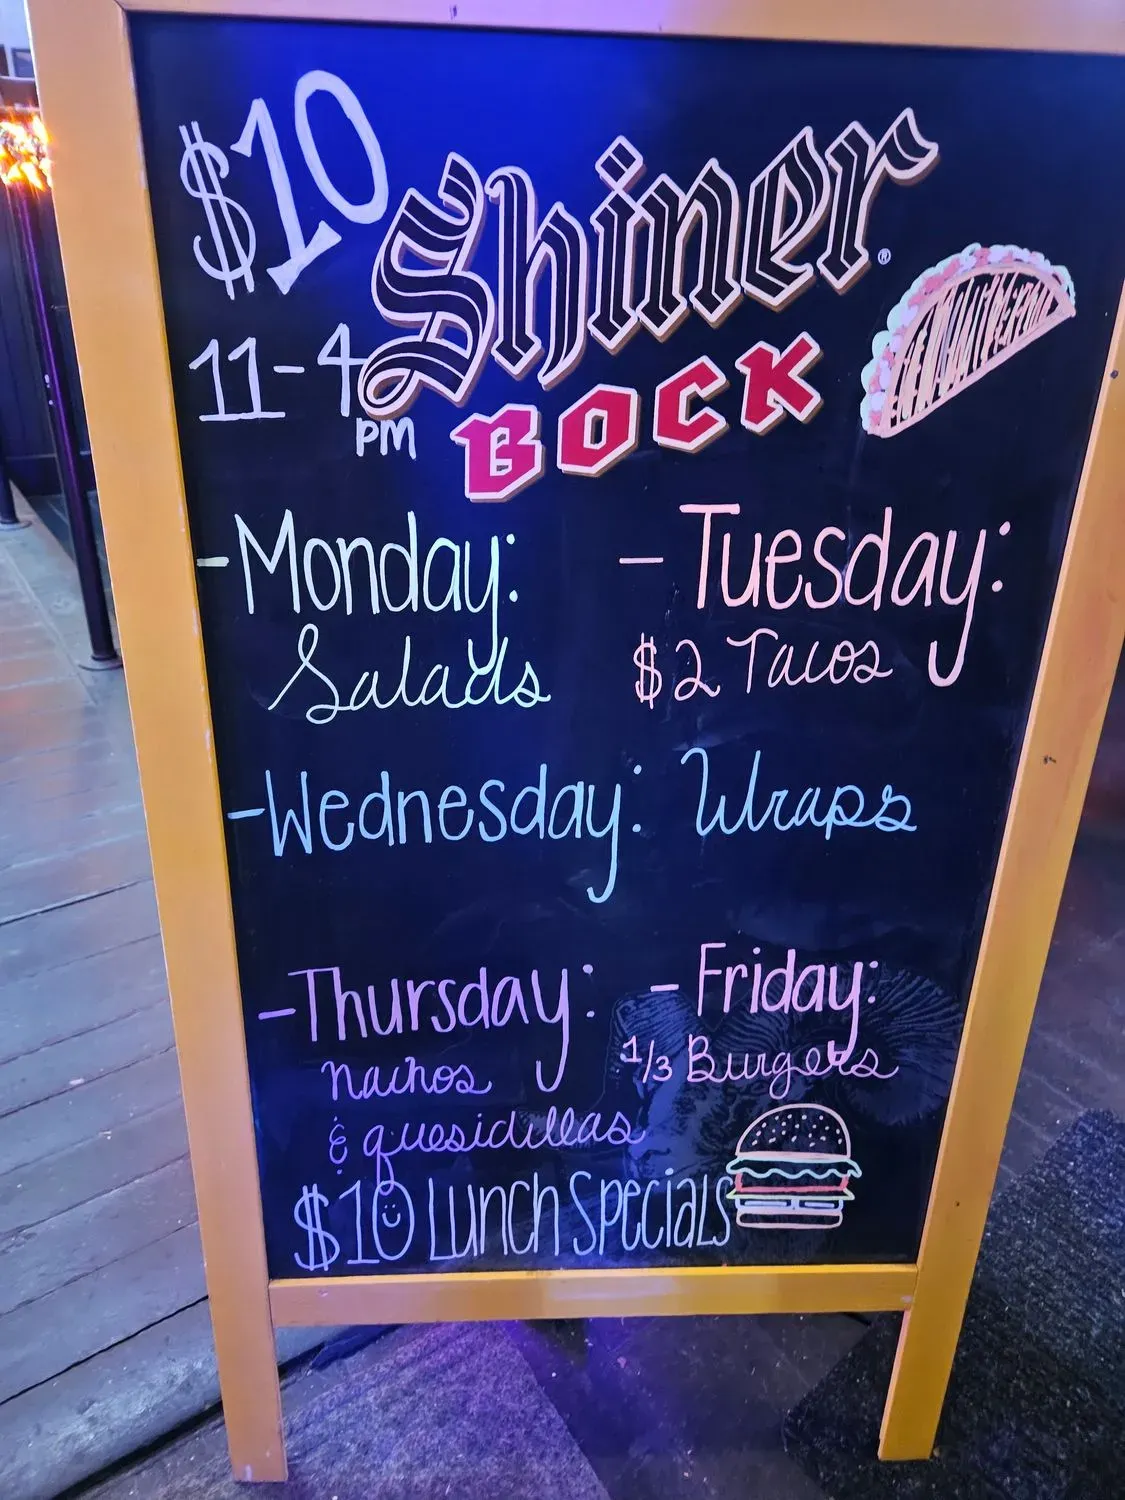 $10
Shiner®
11-4 PM
BOCK
-Monday:
Salads
- Tuesday:
$2 Tacos
-Wednesday: Wraps
-Thursday:
Nachos
& quesidillas
- Friday:
1/3 Burgers
$10 Lunch Specials